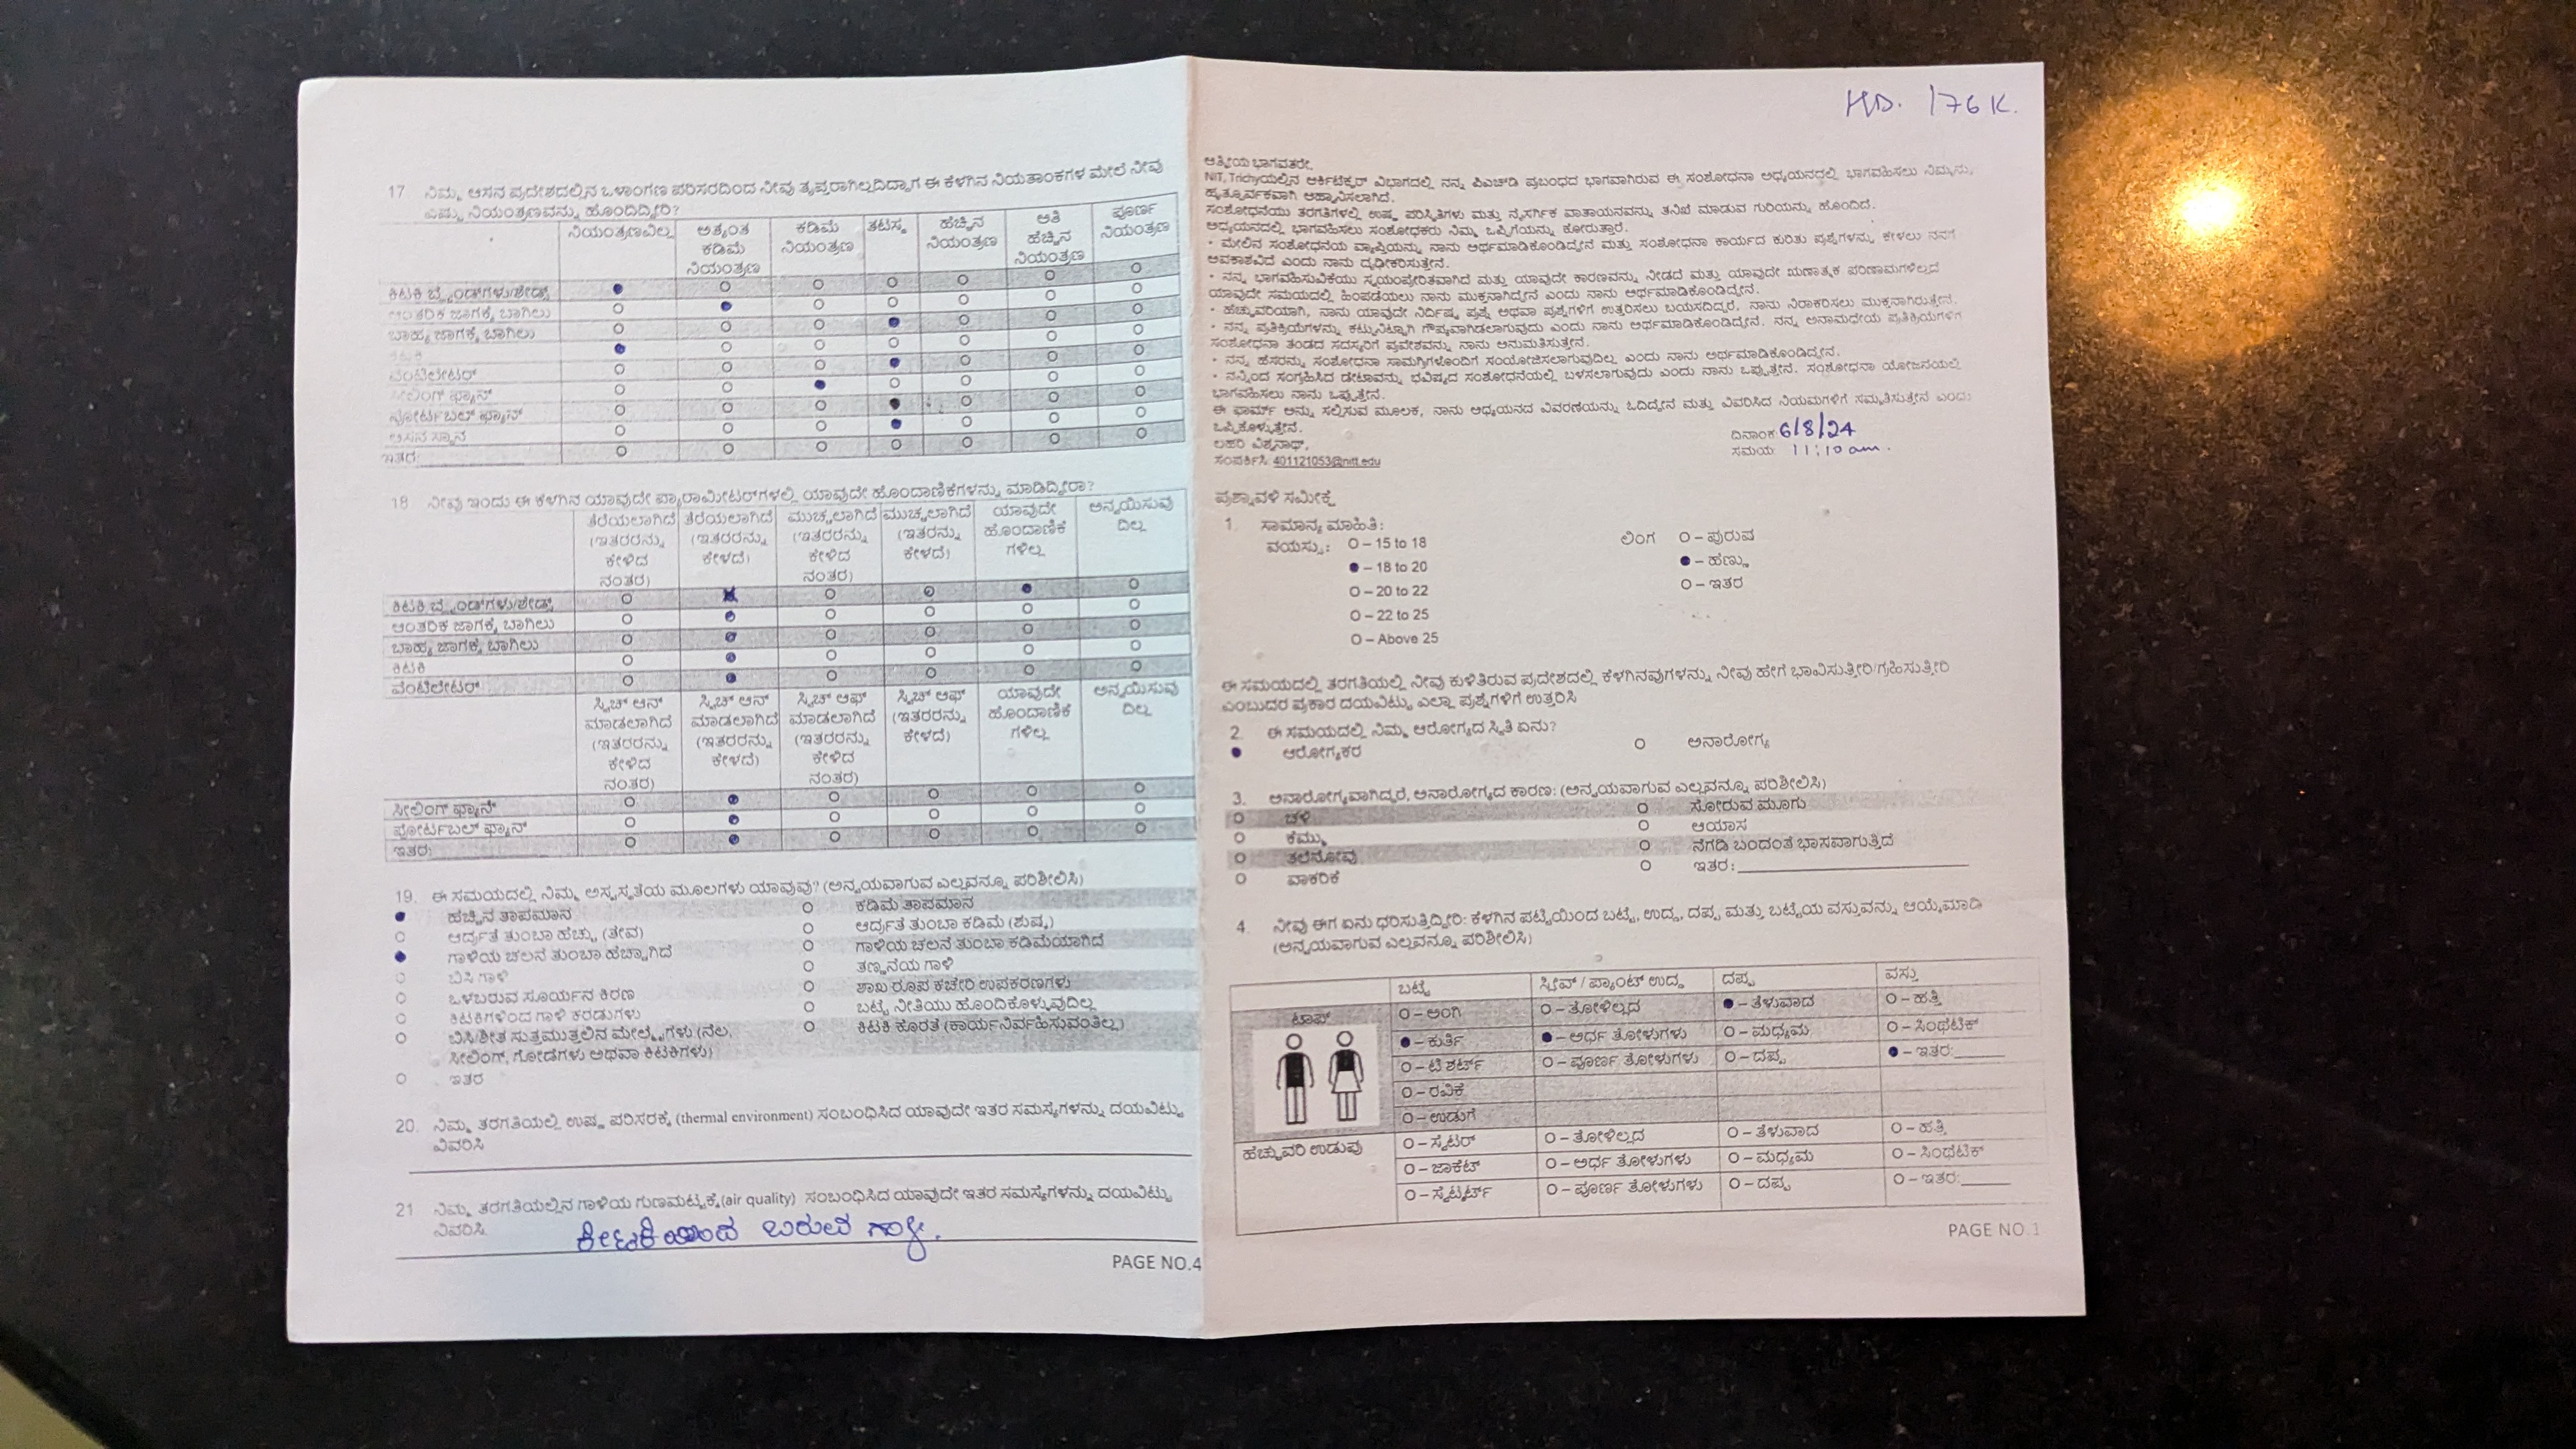 17 ನಿಮ್ಮ ಆಸನ ಪ್ರದೇಶದಲ್ಲಿನ ಒಳಾಂಗಣ ಪರಿಸರದಿಂದ ನೀವು ತೃಪ್ತರಾಗಿಲ್ಲದಿದ್ದಾಗ ಈ ಕೆಳಗಿನ ನಿಯತಾಂಕಗಳ ಮೇಲೆ ನೀವು
ಎಷ್ಟು ನಿಯಂತ್ರಣವನ್ನು ಹೊಂದಿದ್ದೀರಿ?
ನಿಯಂತ್ರಣವಿಲ್ಲ ಅತ್ಯಂತ ಕಡಿಮೆ ನಿಯಂತ್ರಣ ಕಡಿಮೆ ನಿಯಂತ್ರಣ ತಟಸ್ಥ ಹೆಚ್ಚಿನ ನಿಯಂತ್ರಣ ಅತಿ ಹೆಚ್ಚಿನ ನಿಯಂತ್ರಣ ಪೂರ್ಣ ನಿಯಂತ್ರಣ
ಕಿಟಕಿ ಬ್ಲೈಂಡ್‌ಗಳು/ಶೇಡ್ಸ್
ಆಂತರಿಕ ಜಾಗಕ್ಕೆ ಬಾಗಿಲು
ಬಾಹ್ಯ ಜಾಗಕ್ಕೆ ಬಾಗಿಲು
ಕಿಟಕಿ
ವೆಂಟಿಲೇಟರ್
ಸೀಲಿಂಗ್ ಫ್ಯಾನ್
ಪೋರ್ಟಬಲ್ ಫ್ಯಾನ್
ಆಸನ ಸ್ಥಾನ
ಇತರ:
18 ನೀವು ಇಂದು ಈ ಕೆಳಗಿನ ಯಾವುದೇ ಪ್ಯಾರಾಮೀಟರ್‌ಗಳಲ್ಲಿ ಯಾವುದೇ ಹೊಂದಾಣಿಕೆಗಳನ್ನು ಮಾಡಿದ್ದೀರಾ?
ತೆರೆಯಲಾಗಿದೆ (ಇತರರನ್ನು ಕೇಳಿದ ನಂತರ) ತೆರೆಯಲಾಗಿದೆ (ಇತರರನ್ನು ಕೇಳದೆ) ಮುಚ್ಚಲಾಗಿದೆ (ಇತರರನ್ನು ಕೇಳಿದ ನಂತರ) ಮುಚ್ಚಲಾಗಿದೆ (ಇತರನ್ನು ಕೇಳದೆ) ಯಾವುದೇ ಹೊಂದಾಣಿಕೆ ಗಳಿಲ್ಲ ಅನ್ವಯಿಸುವು ದಿಲ್ಲ
ಕಿಟಕಿ ಬ್ಲೈಂಡ್‌ಗಳು/ಶೇಡ್ಸ್
ಆಂತರಿಕ ಜಾಗಕ್ಕೆ ಬಾಗಿಲು
ಬಾಹ್ಯ ಜಾಗಕ್ಕೆ ಬಾಗಿಲು
ಕಿಟಕಿ
ವೆಂಟಿಲೇಟರ್
ಸ್ವಿಚ್ ಆನ್ ಮಾಡಲಾಗಿದೆ (ಇತರರನ್ನು ಕೇಳಿದ ನಂತರ) ಸ್ವಿಚ್ ಆನ್ ಮಾಡಲಾಗಿದೆ (ಇತರರನ್ನು ಕೇಳದೆ) ಸ್ವಿಚ್ ಆಫ್ ಮಾಡಲಾಗಿದೆ (ಇತರರನ್ನು ಕೇಳಿದ ನಂತರ) ಸ್ವಿಚ್ ಆಫ್ (ಇತರರನ್ನು ಕೇಳದೆ) ಯಾವುದೇ ಹೊಂದಾಣಿಕೆ ಗಳಿಲ್ಲ ಅನ್ವಯಿಸುವು ದಿಲ್ಲ
ಸೀಲಿಂಗ್ ಫ್ಯಾನ್
ಪೋರ್ಟಬಲ್ ಫ್ಯಾನ್
ಇತರ:
19. ಈ ಸಮಯದಲ್ಲಿ ನಿಮ್ಮ ಅಸ್ವಸ್ಥತೆಯ ಮೂಲಗಳು ಯಾವುವು? (ಅನ್ವಯವಾಗುವ ಎಲ್ಲವನ್ನೂ ಪರಿಶೀಲಿಸಿ)
ಹೆಚ್ಚಿನ ತಾಪಮಾನ ಕಡಿಮೆ ತಾಪಮಾನ
ಆರ್ದ್ರತೆ ತುಂಬಾ ಹೆಚ್ಚು (ತೇವ) ಆರ್ದ್ರತೆ ತುಂಬಾ ಕಡಿಮೆ (ಶುಷ್ಕ)
ಗಾಳಿಯ ಚಲನೆ ತುಂಬಾ ಹೆಚ್ಚಾಗಿದೆ ಗಾಳಿಯ ಚಲನೆ ತುಂಬಾ ಕಡಿಮೆಯಾಗಿದೆ
ಬಿಸಿ ಗಾಳಿ ತಣ್ಣನೆಯ ಗಾಳಿ
ಒಳಬರುವ ಸೂರ್ಯನ ಕಿರಣ ಶಾಖ ರೂಪ ಕಚೇರಿ ಉಪಕರಣಗಳು
ಕಿಟಕಿಗಳಿಂದ ಗಾಳಿ ಕರಡುಗಳು ಬಟ್ಟೆ ನೀತಿಯು ಹೊಂದಿಕೊಳ್ಳುವುದಿಲ್ಲ
ಬಿಸಿ/ಶೀತ ಸುತ್ತಮುತ್ತಲಿನ ಮೇಲ್ಮೈಗಳು (ನೆಲ, ಕಿಟಕಿ ಕೊರತೆ (ಕಾರ್ಯನಿರ್ವಹಿಸುವಂತಿಲ್ಲ)
ಸೀಲಿಂಗ್, ಗೋಡೆಗಳು ಅಥವಾ ಕಿಟಕಿಗಳು)
ಇತರ
20. ನಿಮ್ಮ ತರಗತಿಯಲ್ಲಿ ಉಷ್ಣ ಪರಿಸರಕ್ಕೆ (thermal environment) ಸಂಬಂಧಿಸಿದ ಯಾವುದೇ ಇತರ ಸಮಸ್ಯೆಗಳನ್ನು ದಯವಿಟ್ಟು
ವಿವರಿಸಿ
21 ನಿಮ್ಮ ತರಗತಿಯಲ್ಲಿನ ಗಾಳಿಯ ಗುಣಮಟ್ಟಕ್ಕೆ(air quality) ಸಂಬಂಧಿಸಿದ ಯಾವುದೇ ಇತರ ಸಮಸ್ಯೆಗಳನ್ನು ದಯವಿಟ್ಟು
ವಿವರಿಸಿ
ಬರುವ ಗಾಳಿ.
PAGE NO.4
HD. 176 K.
ಆತ್ಮೀಯ ಭಾಗವತರೇ,
NIT, Trichyಯಲ್ಲಿನ ಆರ್ಕಿಟೆಕ್ಚರ್ ವಿಭಾಗದಲ್ಲಿ ನನ್ನ ಪಿಎಚ್‌ಡಿ ಪ್ರಬಂಧದ ಭಾಗವಾಗಿರುವ ಈ ಸಂಶೋಧನಾ ಅಧ್ಯಯನದಲ್ಲಿ ಭಾಗವಹಿಸಲು ನಿಮ್ಮನ್ನು
ಹೃತ್ಪೂರ್ವಕವಾಗಿ ಆಹ್ವಾನಿಸಲಾಗಿದೆ.
ಸಂಶೋಧನೆಯು ತರಗತಿಗಳಲ್ಲಿ ಉಷ್ಣ ಪರಿಸ್ಥಿತಿಗಳು ಮತ್ತು ನೈಸರ್ಗಿಕ ವಾತಾಯನವನ್ನು ತನಿಖೆ ಮಾಡುವ ಗುರಿಯನ್ನು ಹೊಂದಿದೆ.
ಅಧ್ಯಯನದಲ್ಲಿ ಭಾಗವಹಿಸಲು ಸಂಶೋಧಕರು ನಿಮ್ಮ ಒಪ್ಪಿಗೆಯನ್ನು ಕೋರುತ್ತಾರೆ.
• ಮೇಲಿನ ಸಂಶೋಧನೆಯ ವ್ಯಾಪ್ತಿಯನ್ನು ನಾನು ಅರ್ಥಮಾಡಿಕೊಂಡಿದ್ದೇನೆ ಮತ್ತು ಸಂಶೋಧನಾ ಕಾರ್ಯದ ಕುರಿತು ಪ್ರಶ್ನೆಗಳನ್ನು ಕೇಳಲು ನನಗೆ
ಅವಕಾಶವಿದೆ ಎಂದು ನಾನು ದೃಢೀಕರಿಸುತ್ತೇನೆ.
• ನನ್ನ ಭಾಗವಹಿಸುವಿಕೆಯು ಸ್ವಯಂಪ್ರೇರಿತವಾಗಿದೆ ಮತ್ತು ಯಾವುದೇ ಕಾರಣವನ್ನು ನೀಡದೆ ಮತ್ತು ಯಾವುದೇ ಋಣಾತ್ಮಕ ಪರಿಣಾಮಗಳಿಲ್ಲದೆ
ಯಾವುದೇ ಸಮಯದಲ್ಲಿ ಹಿಂಪಡೆಯಲು ನಾನು ಮುಕ್ತನಾಗಿದ್ದೇನೆ ಎಂದು ನಾನು ಅರ್ಥಮಾಡಿಕೊಂಡಿದ್ದೇನೆ.
• ಹೆಚ್ಚುವರಿಯಾಗಿ, ನಾನು ಯಾವುದೇ ನಿರ್ದಿಷ್ಟ ಪ್ರಶ್ನೆ ಅಥವಾ ಪ್ರಶ್ನೆಗಳಿಗೆ ಉತ್ತರಿಸಲು ಬಯಸದಿದ್ದರೆ, ನಾನು ನಿರಾಕರಿಸಲು ಮುಕ್ತನಾಗಿರುತ್ತೇನೆ.
• ನನ್ನ ಪ್ರತಿಕ್ರಿಯೆಗಳನ್ನು ಕಟ್ಟುನಿಟ್ಟಾಗಿ ಗೌಪ್ಯವಾಗಿಡಲಾಗುವುದು ಎಂದು ನಾನು ಅರ್ಥಮಾಡಿಕೊಂಡಿದ್ದೇನೆ. ನನ್ನ ಅನಾಮಧೇಯ ಪ್ರತಿಕ್ರಿಯೆಗಳಿಗೆ
ಸಂಶೋಧನಾ ತಂಡದ ಸದಸ್ಯರಿಗೆ ಪ್ರವೇಶವನ್ನು ನಾನು ಅನುಮತಿಸುತ್ತೇನೆ.
• ನನ್ನ ಹೆಸರನ್ನು ಸಂಶೋಧನಾ ಸಾಮಗ್ರಿಗಳೊಂದಿಗೆ ಸಂಯೋಜಿಸಲಾಗುವುದಿಲ್ಲ ಎಂದು ನಾನು ಅರ್ಥಮಾಡಿಕೊಂಡಿದ್ದೇನೆ.
• ನನ್ನಿಂದ ಸಂಗ್ರಹಿಸಿದ ಡೇಟಾವನ್ನು ಭವಿಷ್ಯದ ಸಂಶೋಧನೆಯಲ್ಲಿ ಬಳಸಲಾಗುವುದು ಎಂದು ನಾನು ಒಪ್ಪುತ್ತೇನೆ. ಸಂಶೋಧನಾ ಯೋಜನೆಯಲ್ಲಿ
ಭಾಗವಹಿಸಲು ನಾನು ಒಪ್ಪುತ್ತೇನೆ.
ಈ ಫಾರ್ಮ್ ಅನ್ನು ಸಲ್ಲಿಸುವ ಮೂಲಕ, ನಾನು ಅಧ್ಯಯನದ ವಿವರಣೆಯನ್ನು ಓದಿದ್ದೇನೆ ಮತ್ತು ವಿವರಿಸಿದ ನಿಯಮಗಳಿಗೆ ಸಮ್ಮತಿಸುತ್ತೇನೆ ಎಂದು
ಒಪ್ಪಿಕೊಳ್ಳುತ್ತೇನೆ.
ಲಹರಿ ವಿಶ್ವನಾಥ್,
ಸಂಪರ್ಕಿಸಿ: 401121053@nitt.edu
ದಿನಾಂಕ 6/8/24
ಸಮಯ 11:10 am.
ಪ್ರಶ್ನಾವಳಿ ಸಮೀಕ್ಷೆ
1. ಸಾಮಾನ್ಯ ಮಾಹಿತಿ:
ವಯಸ್ಸು: O – 15 to 18 ಲಿಂಗ O – ಪುರುಷ
– 18 to 20 – ಹೆಣ್ಣು
O – 20 to 22 O – ಇತರ
O – 22 to 25
O – Above 25
ಈ ಸಮಯದಲ್ಲಿ ತರಗತಿಯಲ್ಲಿ ನೀವು ಕುಳಿತಿರುವ ಪ್ರದೇಶದಲ್ಲಿ ಕೆಳಗಿನವುಗಳನ್ನು ನೀವು ಹೇಗೆ ಭಾವಿಸುತ್ತೀರಿ/ಗ್ರಹಿಸುತ್ತೀರಿ
ಎಂಬುದರ ಪ್ರಕಾರ ದಯವಿಟ್ಟು ಎಲ್ಲಾ ಪ್ರಶ್ನೆಗಳಿಗೆ ಉತ್ತರಿಸಿ
2. ಈ ಸಮಯದಲ್ಲಿ ನಿಮ್ಮ ಆರೋಗ್ಯದ ಸ್ಥಿತಿ ಏನು?
ಆರೋಗ್ಯಕರ O ಅನಾರೋಗ್ಯ
3. ಅನಾರೋಗ್ಯವಾಗಿದ್ದರೆ, ಅನಾರೋಗ್ಯದ ಕಾರಣ: (ಅನ್ವಯವಾಗುವ ಎಲ್ಲವನ್ನೂ ಪರಿಶೀಲಿಸಿ)
ಚಳಿ ಸೋರುವ ಮೂಗು
ಕೆಮ್ಮು ಆಯಾಸ
ತಲೆನೋವು ನೆಗಡಿ ಬಂದಂತೆ ಭಾಸವಾಗುತ್ತಿದೆ
ವಾಕರಿಕೆ ಇತರ:
4. ನೀವು ಈಗ ಏನು ಧರಿಸುತ್ತಿದ್ದೀರಿ: ಕೆಳಗಿನ ಪಟ್ಟಿಯಿಂದ ಬಟ್ಟೆ, ಉದ್ದ, ದಪ್ಪ ಮತ್ತು ಬಟ್ಟೆಯ ವಸ್ತುವನ್ನು ಆಯ್ಕೆಮಾಡಿ
(ಅನ್ವಯವಾಗುವ ಎಲ್ಲವನ್ನೂ ಪರಿಶೀಲಿಸಿ)
ಬಟ್ಟೆ ಸ್ಲೀವ್ / ಪ್ಯಾಂಟ್ ಉದ್ದ ದಪ್ಪ ವಸ್ತು
ಟಾಪ್ O – ಅಂಗಿ O – ತೋಳಿಲ್ಲದ – ತೆಳುವಾದ O – ಹತ್ತಿ
– ಕುರ್ತಿ – ಅರ್ಧ ತೋಳುಗಳು O – ಮಧ್ಯಮ O – ಸಿಂಥೆಟಿಕ್
O – ಟಿ ಶರ್ಟ್ O – ಪೂರ್ಣ ತೋಳುಗಳು O – ದಪ್ಪ – ಇತರ:
O – ರವಿಕೆ
O – ಉಡುಗೆ
ಹೆಚ್ಚುವರಿ ಉಡುಪು O – ಸ್ವೆಟರ್ O – ತೋಳಿಲ್ಲದ O – ತೆಳುವಾದ O – ಹತ್ತಿ
O – ಜಾಕೆಟ್ O – ಅರ್ಧ ತೋಳುಗಳು O – ಮಧ್ಯಮ O – ಸಿಂಥೆಟಿಕ್
O – ಸ್ವೆಟ್ಶರ್ಟ್ O – ಪೂರ್ಣ ತೋಳುಗಳು O – ದಪ್ಪ O – ಇತರ:
PAGE NO.1